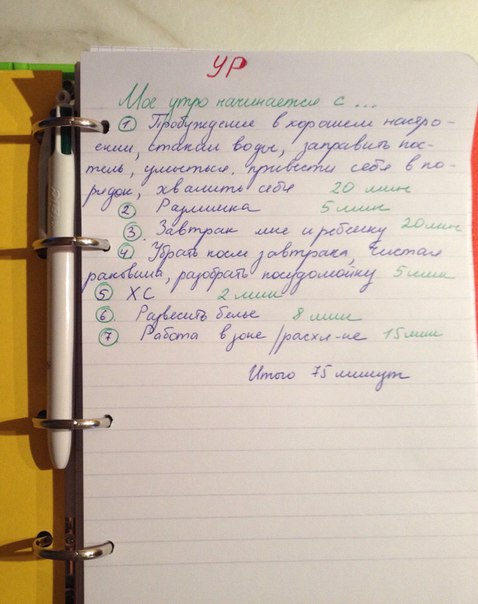 УР
Мое утро начинается с ...
1 Пробуждение в хорошем настро-
ении, стакан воды, заправить пос-
тель, умыться. привести себя в по-
рядок, хвалить себя 20 мин
2 Разминка 5 мин
3. Завтрак мне и ребенку 20 мин
4 Убрать после завтрака, чистая
раковина, разобрать посудомойку 5 мин
5 ХС 2 мин
6. Развесить белье 8 мин
7 Работа в зоне//расхл-ие 15 мин
Итого 75 минут